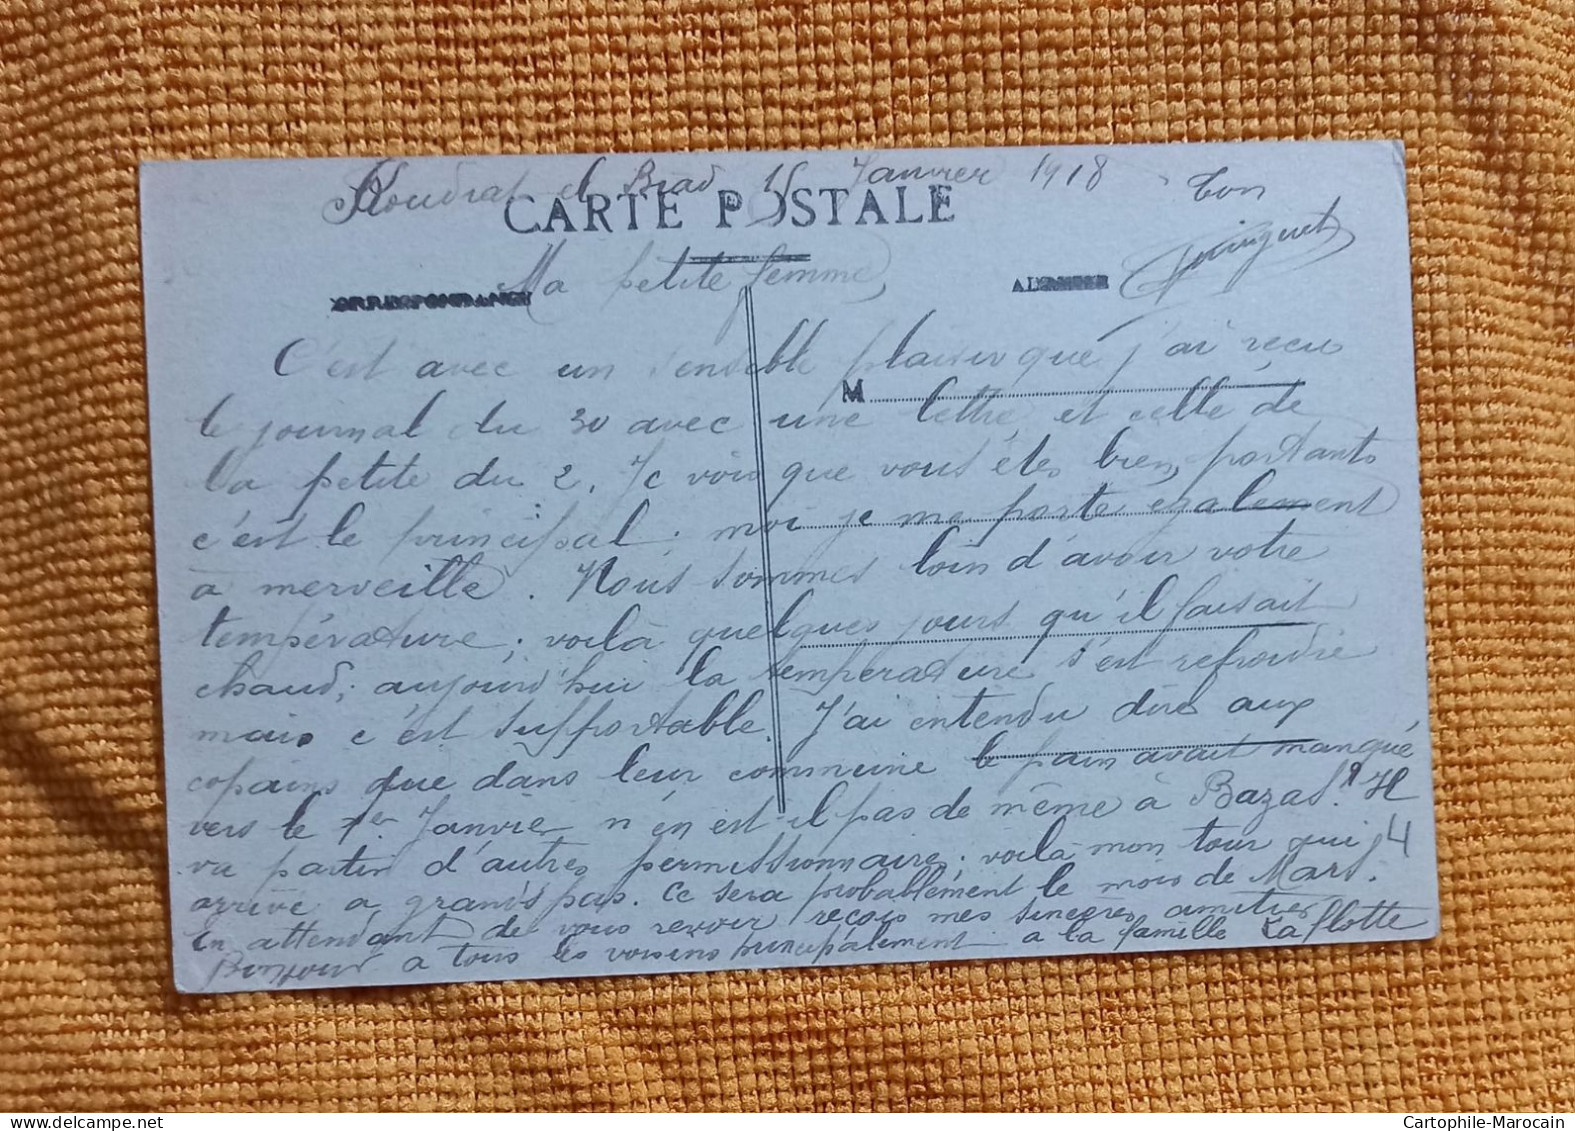 Koudiat el Biad 15 Janvier 1918
CARTE POSTALE
Ton
Guinguet
Ma petite femme
CORRESPONDANCE
ADRESSE
C'est avec un sensible plaisir que j'ai reçu
M
le journal du 30 avec une lettre et celle de
la petite du 2. Je vois que vous êtes bien portants
c'est le principal; moi je me porte egalement
à merveille. Nous sommes loin d'avoir votre
température; voilà quelques jours qu'il faisait
chaud; aujourd'hui la température s'est refroidie
mais c'est supportable. J'ai entendu dire aux
copains que dans leur commune le pain avait manqué
vers le 1er Janvier n'en est-il pas de même à Bazas? Il
va partir d'autres permissionnaires; voilà mon tour qui
4
arrive a grands pas. Ce sera probablement le mois de Mars.
En attendant de vous revoir reçois mes sincères amitiés
Bonjour a tous les voisins principalement a la famille Laflotte
Cartophile-Marocain